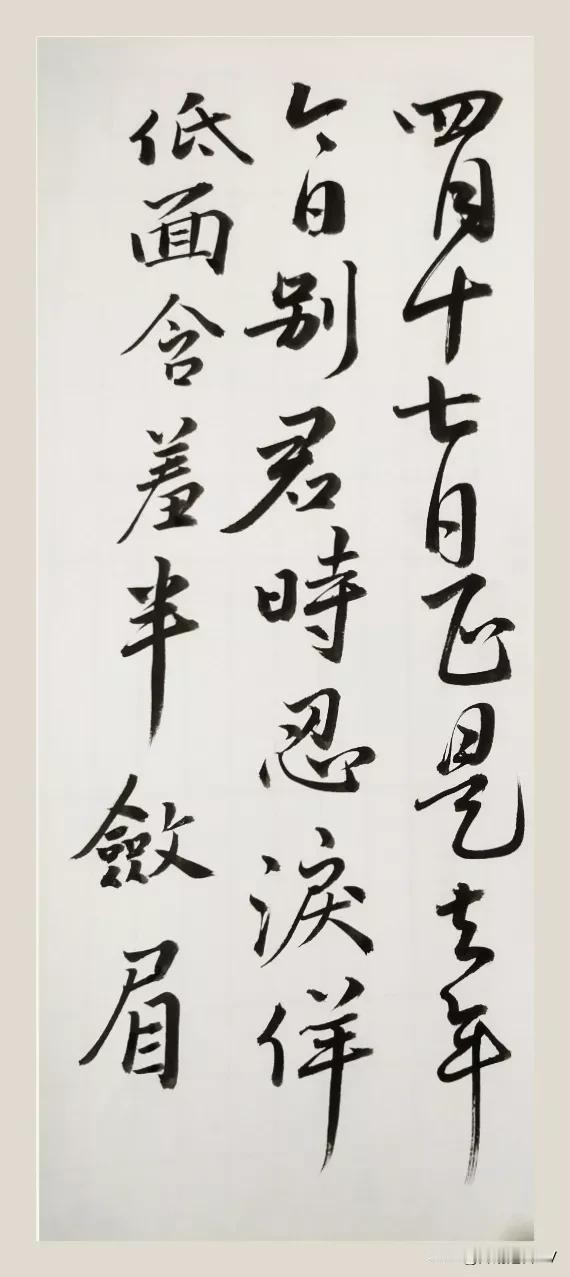 四月十七日正是去年
今日別君時忍淚佯
低面含羞半斂眉